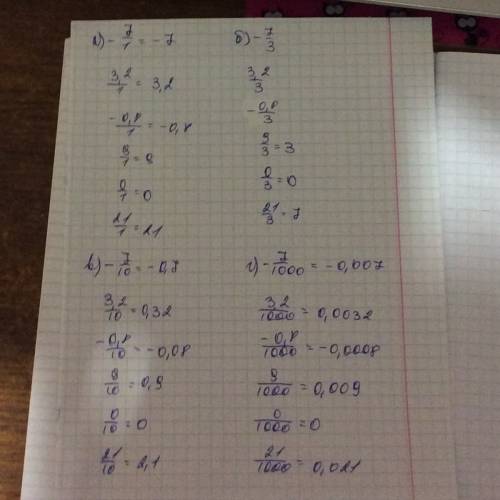 а) -7/1 = -7
3,2/1 = 3,2
-0,8/1 = -0,8
9/1 = 9
0/1 = 0
21/1 = 21
б) -7/3
3,2/3
-0,8/3
9/3 = 3
0/3 = 0
21/3 = 7
в) -7/10 = -0,7
3,2/10 = 0,32
-0,8/10 = -0,08
9/10 = 0,9
0/10 = 0
21/10 = 2,1
г) -7/1000 = -0,007
3,2/1000 = 0,0032
-0,8/1000 = -0,0008
9/1000 = 0,009
0/1000 = 0
21/1000 = 0,021